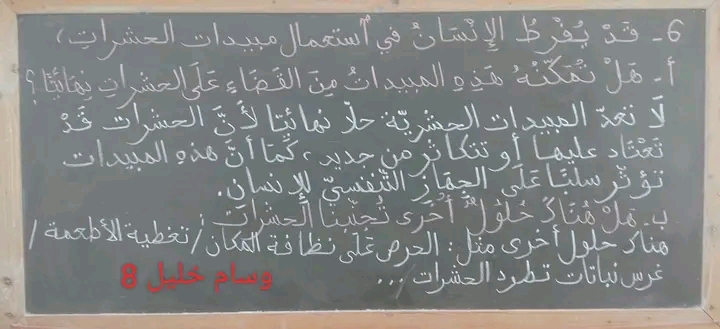 6- قَدْ يُفْرِطُ الإِنْسَانُ في آستعمال مبيدات الحشراتِ،
أ- هَلْ تُمَكِّنُهُ هَذِهِ المبيداتُ مِنَ القَضَاءِ عَلَى الحشراتِ نِهَائِيًّا؟
لَا تعدّ المبيدات الحشريّة حلّا نهائيّا لأَنَّ الحشرات قَدْ
تَعْتَاد عليها أو تتكاثر من جديد، كَمَا أنَّ هذهِ المبيدات
تؤثّر سلبًا عَلَى الجهاز التّنفسيّ للإنسان.
ب- هَلْ هُنَاكَ حُلُولٌ أُخْرَى تُجَنِّبُنَا الحَشَرَات
هناك حلول أخرى مثل: الحرص عَلَى نظافة المكان / تغطية الأطعمة /
غرس نباتات تطرد الحشرات / ...
وسام خليل 8